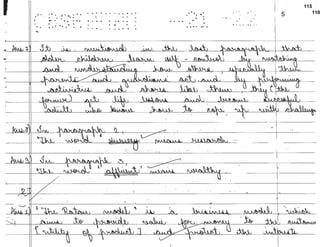 115
5
118
CBSE
21 - 22
Ans 2) It is mentioned in the last paragraph that
older children learn self-control by watching
and understanding how others, specially their
parents and guardians act and by performing
activities and chores like them they (the
former) get life lessons and become successful
adult who knows how to cope up with challenges
Ans 2) In paragraph 2,
The word survey means research.
Ans 3) In paragraph 3,
The word affluent means wealthy.
27
Ans "The Rotow model" is a business model, which
aims to provide value for money to the customer
[utility of product] and protect the interests